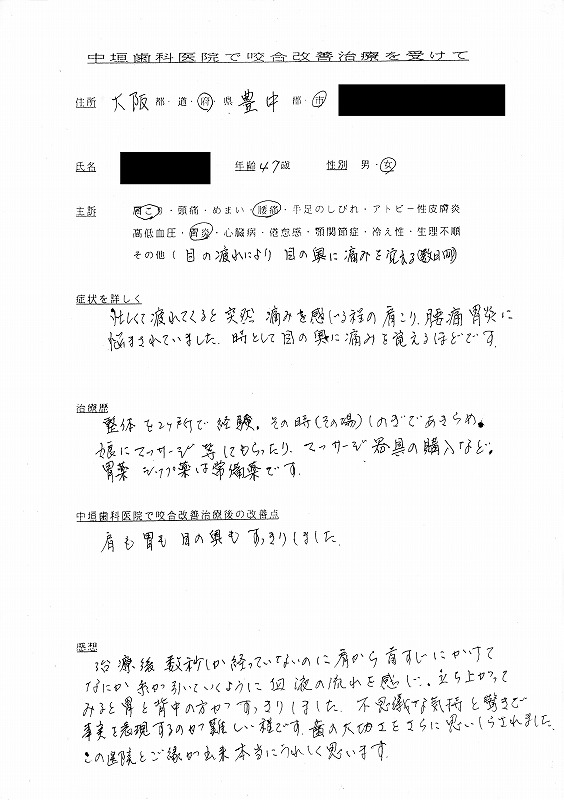 中垣歯科医院で咬合改善治療を受けて
住所 大阪 都・道・府・県 豊中 郡・市
氏名 年齢 47歳 性別 男・女
主訴 肩こり・頭痛・めまい・腰痛・手足のしびれ・アトピー性皮膚炎
高低血圧・胃炎・心臓病・倦怠感・顎関節症・冷え性・生理不順
その他(目の疲れにより 目の奥に痛みを覚える(数日間)
症状を詳しく
忙しくて疲れてくると突然 痛みを感じる程の肩こり、腰痛 胃炎に
悩まされていました。時として目の奥に痛みを覚えるほどです。
治療歴
整体を2ヶ所で経験。その時(その場)しのぎであきらめ。
娘にマッサージ等してもらったり、マッサージ器具の購入など。
胃薬 シップ薬は常備薬です。
中垣歯科医院で咬合改善治療後の改善点
肩も胃も目の奥もすっきりしました。
感想
治療後数秒しか経っていないのに肩から首すじにかけて
なにか糸が引いていくように血液の流れを感じ、立ち上がって
みると胃と背中の方がすっきりしました。不思議な気持と驚きで
事実を表現するのが難しい程です。歯の大切さをさらに思いしらされました。
この医院とご縁が出来本当にうれしく思います。